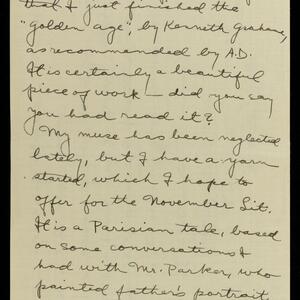 that I just finished the
"Golden Age", by Kenneth Grahame,
as recommended by A.D.
It is certainly a beautiful
piece of work — did you say
you had read it?
My muse has been neglected
lately, but I have a yarn
started, which I hope to
offer for the November Lit.
It is a Parisian tale, based
on some conversations I
had with Mr. Parker, who
painted father's portrait